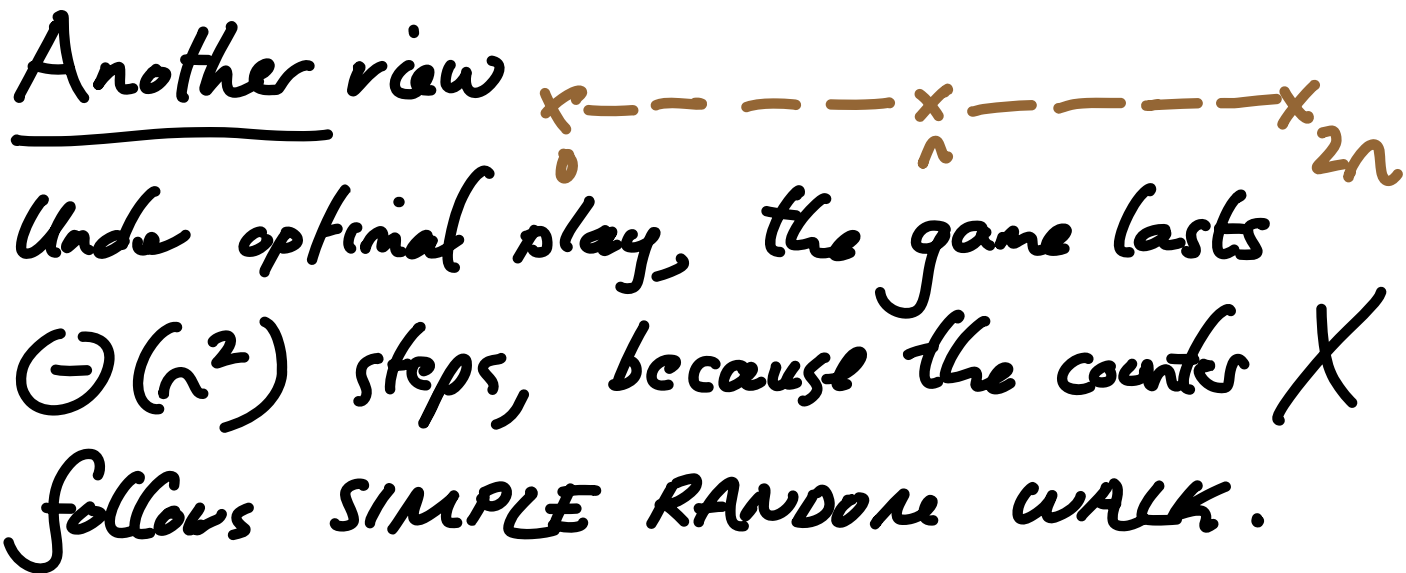 Another view
0 n 2n
Under optimal play, the game lasts
Θ(n²) steps, because the counter X
follows SIMPLE RANDOM WALK.